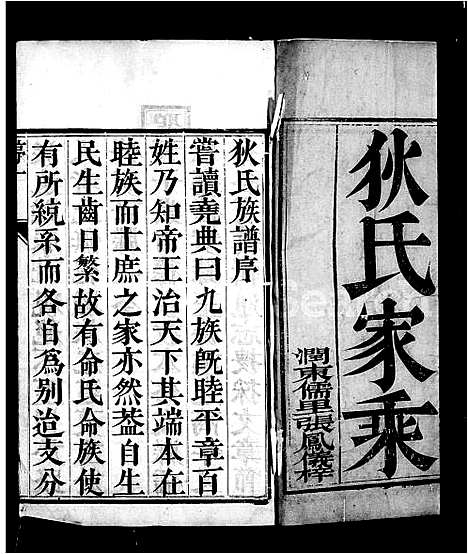 狄氏家乘
潤東儒里張鳳儀梓
狄氏族譜序
嘗讀堯典曰九族既睦平章百
姓乃知帝王治天下其端本在
睦族而士庶之家亦然葢自生
民生齒日繁故有命氏命族使
有所統系而各自爲别迨支分